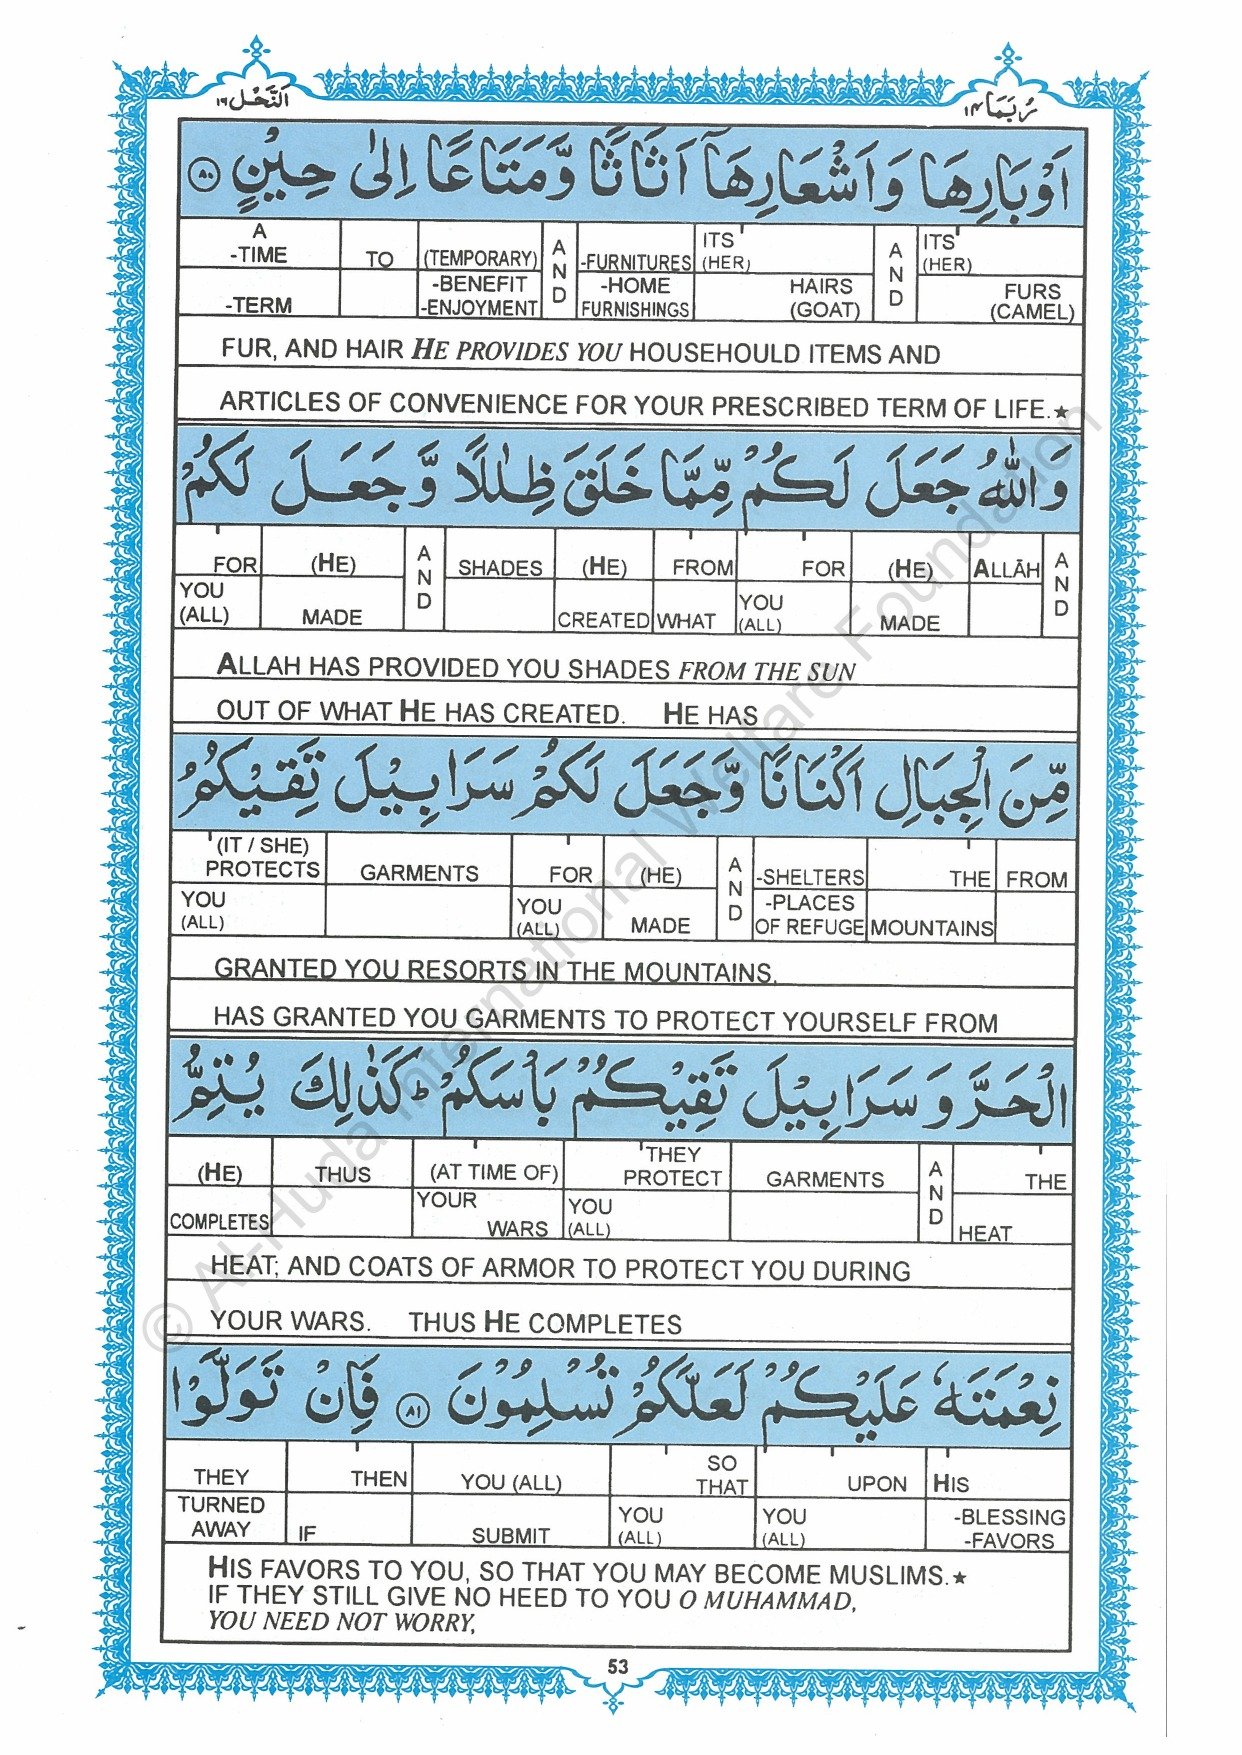 اَلنَّحْل ١٦
رُبَمَا ١٤
اَوْبَارِهَا وَاَشْعَارِهَآ اَثَاثًا وَّمَتَاعًا اِلٰى حِيْنٍ ٨٠
A -TIME TO (TEMPORARY) AND -FURNITURES ITS (HER) AND ITS (HER)
-TERM -BENEFIT -ENJOYMENT -HOME FURNISHINGS HAIRS (GOAT) FURS (CAMEL)
FUR, AND HAIR HE PROVIDES YOU HOUSEHOULD ITEMS AND
ARTICLES OF CONVENIENCE FOR YOUR PRESCRIBED TERM OF LIFE.★
وَاللّٰهُ جَعَلَ لَكُمْ مِّمَّا خَلَقَ ظِلٰلًا وَّجَعَلَ لَكُمْ
FOR (HE) AND SHADES (HE) FROM FOR (HE) ALLĀH AND
YOU (ALL) MADE CREATED WHAT YOU (ALL) MADE
ALLAH HAS PROVIDED YOU SHADES FROM THE SUN
OUT OF WHAT HE HAS CREATED. HE HAS
مِّنَ الْجِبَالِ اَكْنَانًا وَّجَعَلَ لَكُمْ سَرَابِيْلَ تَقِيْكُمُ
(IT / SHE) PROTECTS GARMENTS FOR (HE) AND -SHELTERS THE FROM
YOU (ALL) YOU (ALL) MADE -PLACES OF REFUGE MOUNTAINS
GRANTED YOU RESORTS IN THE MOUNTAINS.
HAS GRANTED YOU GARMENTS TO PROTECT YOURSELF FROM
الْحَرَّ وَسَرَابِيْلَ تَقِيْكُمْ بَاْسَكُمْ ط كَذٰلِكَ يُتِمُّ
(HE) THUS (AT TIME OF) THEY PROTECT GARMENTS AND THE
COMPLETES YOUR WARS YOU (ALL) HEAT
HEAT; AND COATS OF ARMOR TO PROTECT YOU DURING
YOUR WARS. THUS HE COMPLETES
نِعْمَتَهٗ عَلَيْكُمْ لَعَلَّكُمْ تُسْلِمُوْنَ ٨١ فَاِنْ تَوَلَّوْا
THEY THEN YOU (ALL) SO THAT UPON HIS
TURNED AWAY IF SUBMIT YOU (ALL) YOU (ALL) -BLESSING -FAVORS
HIS FAVORS TO YOU, SO THAT YOU MAY BECOME MUSLIMS.★
IF THEY STILL GIVE NO HEED TO YOU O MUHAMMAD,
YOU NEED NOT WORRY,
53
© Al-Huda International Welfare Foundation